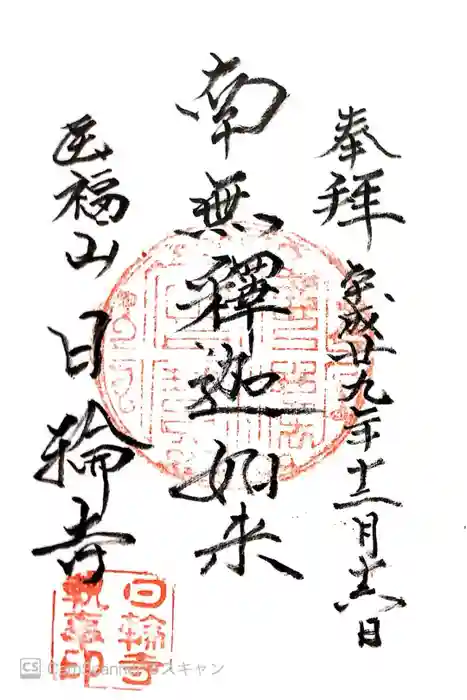 奉拝
平成廿九年十二月十六日
南無釋迦如来
福山
日輪寺
日輪寺
執事印
CS CamScannerでスキャン